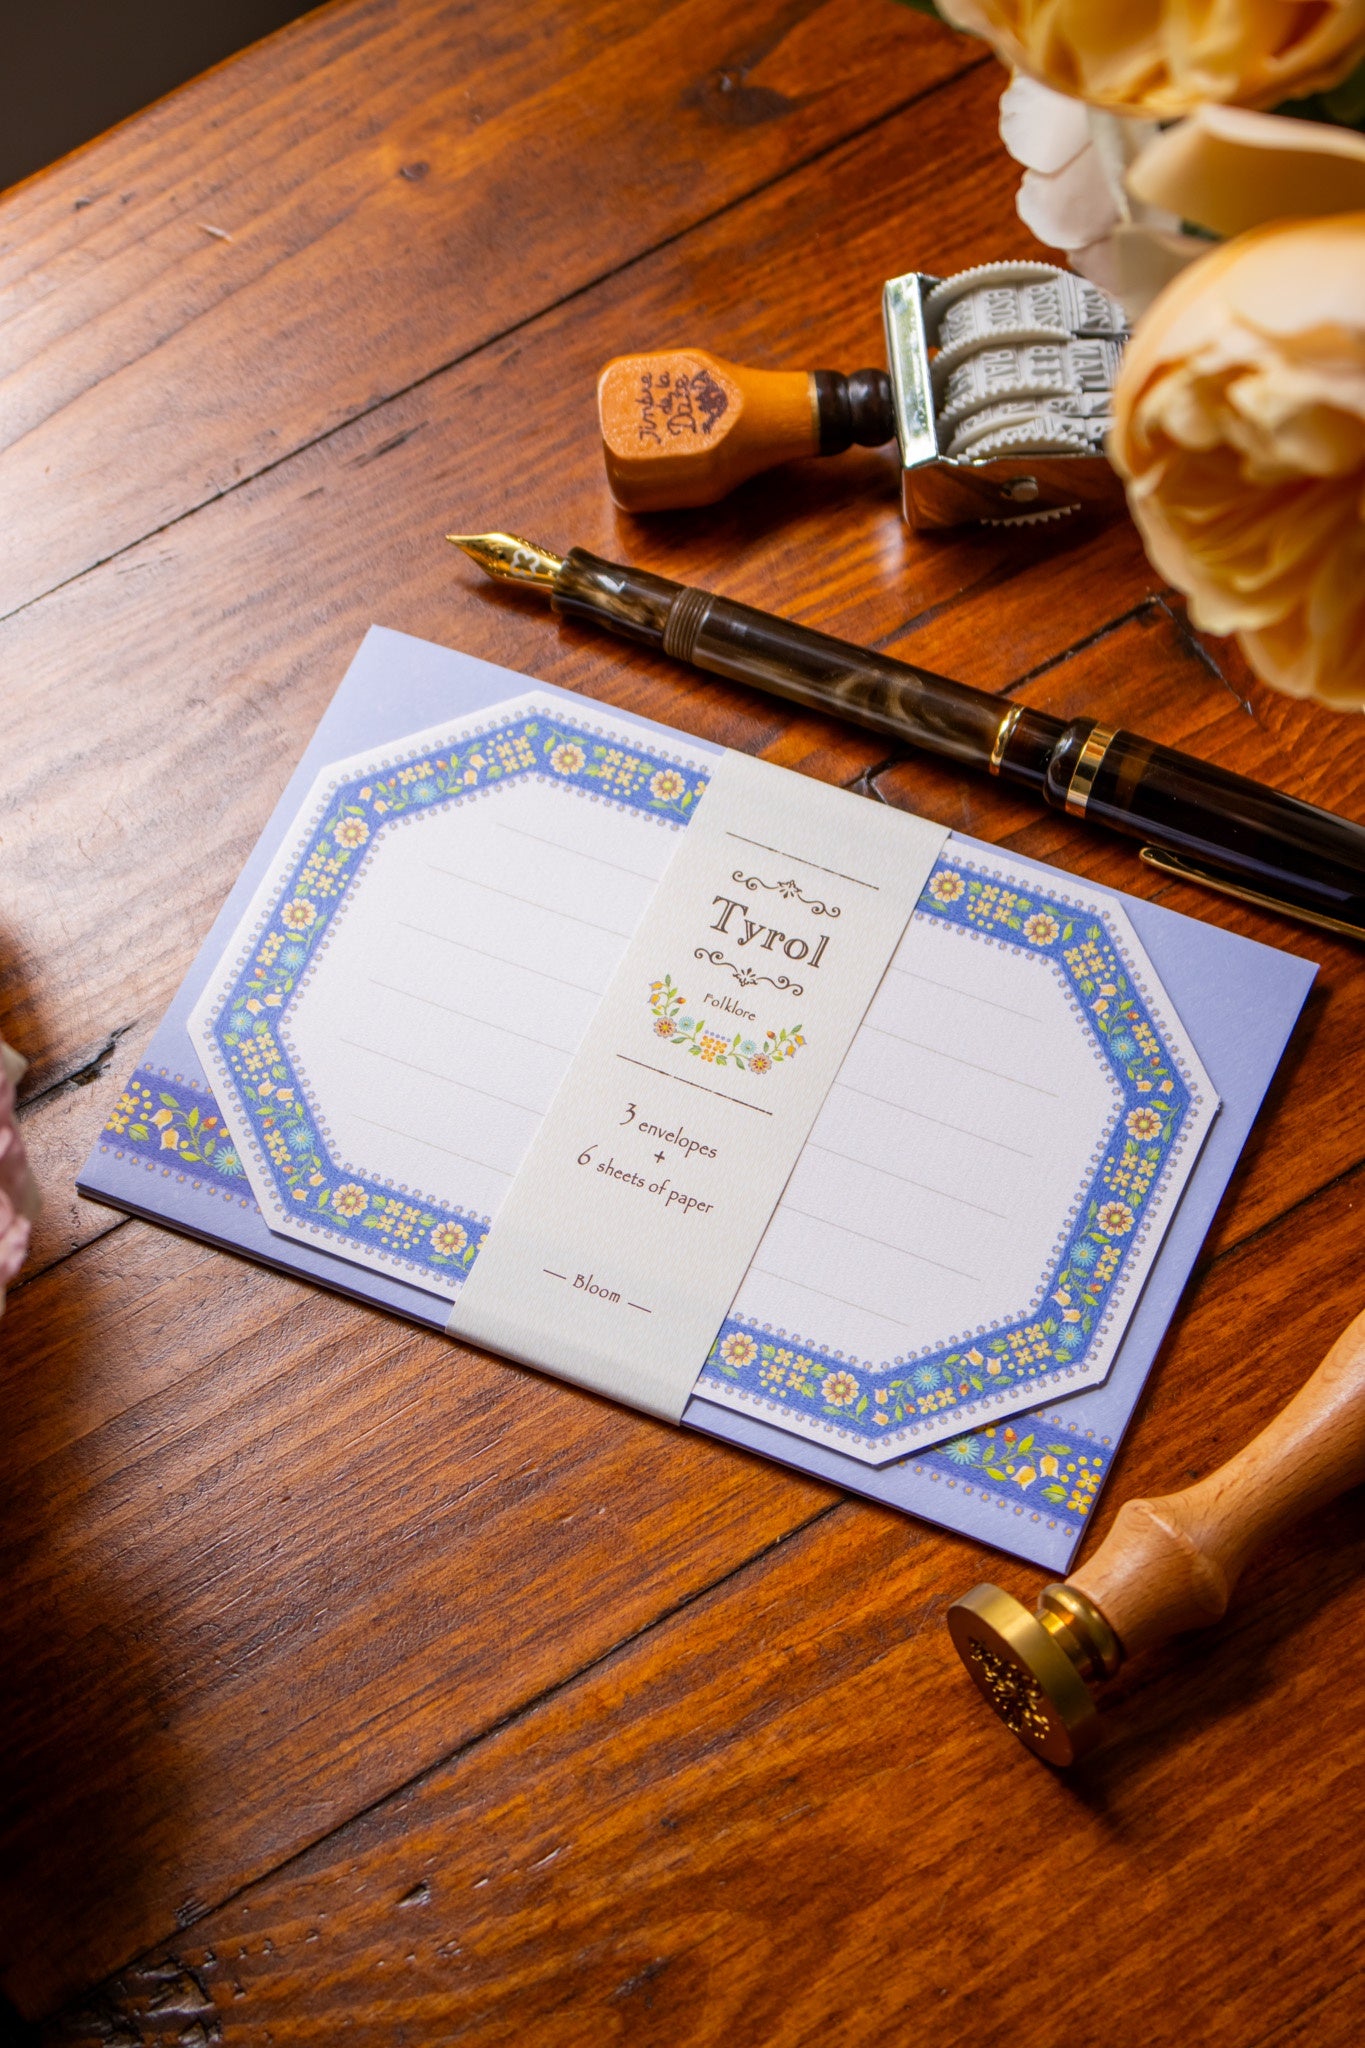 Timbre
de la
Date
Tyrol
Folklore
3 envelopes
+
6 sheets of paper
— Bloom —